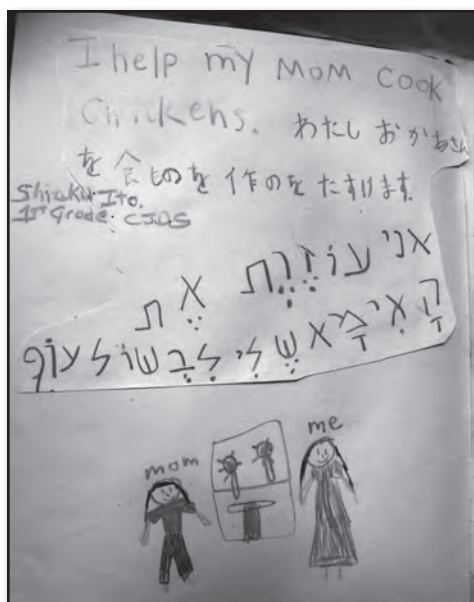 I help my MOM COOK
Chickens. わたし おかあさん
を 食ものを 作のを たすけます.
Shizuku Ito.
1st Grade. CJDS
אני עוֹזֶרֶת אֶת
הָאִימָא שֶלִי לְבָשוֹל עוֹף
mom
me